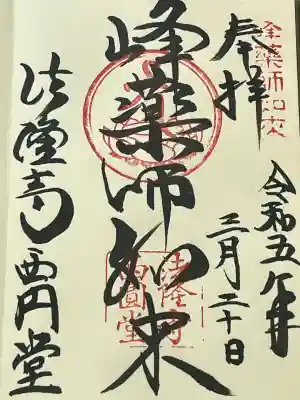 奉拝
金薬師如来
令和五年
三月二十日
峰薬師如来
法隆寺
西円堂
法隆寺西円堂